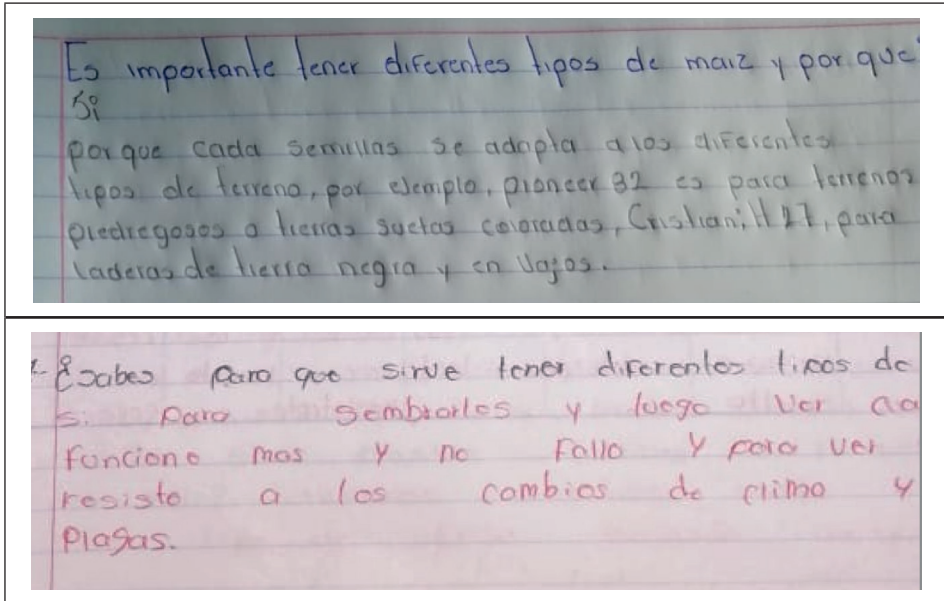 Es importante tener diferentes tipos de maiz y por que
Si
porque cada semillas se adapta a los diferentes
tipos de terreno, por ejemplo, pioneer 32 es para terrenos
piedregosos o tierras suetas coloradas, Cristiani, H 27, para
laderas de tierra negra y en Vajos.
¿Sabes para que sirve tener diferentes tipos de
s. para sembrarlos y luego ver
funciono mas y no fallo y para ver
resiste a los cambios de clima y
plagas.